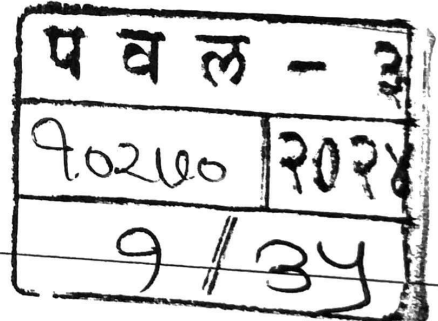 प व ल - ३
१०२७० २०२४
१ / ३५